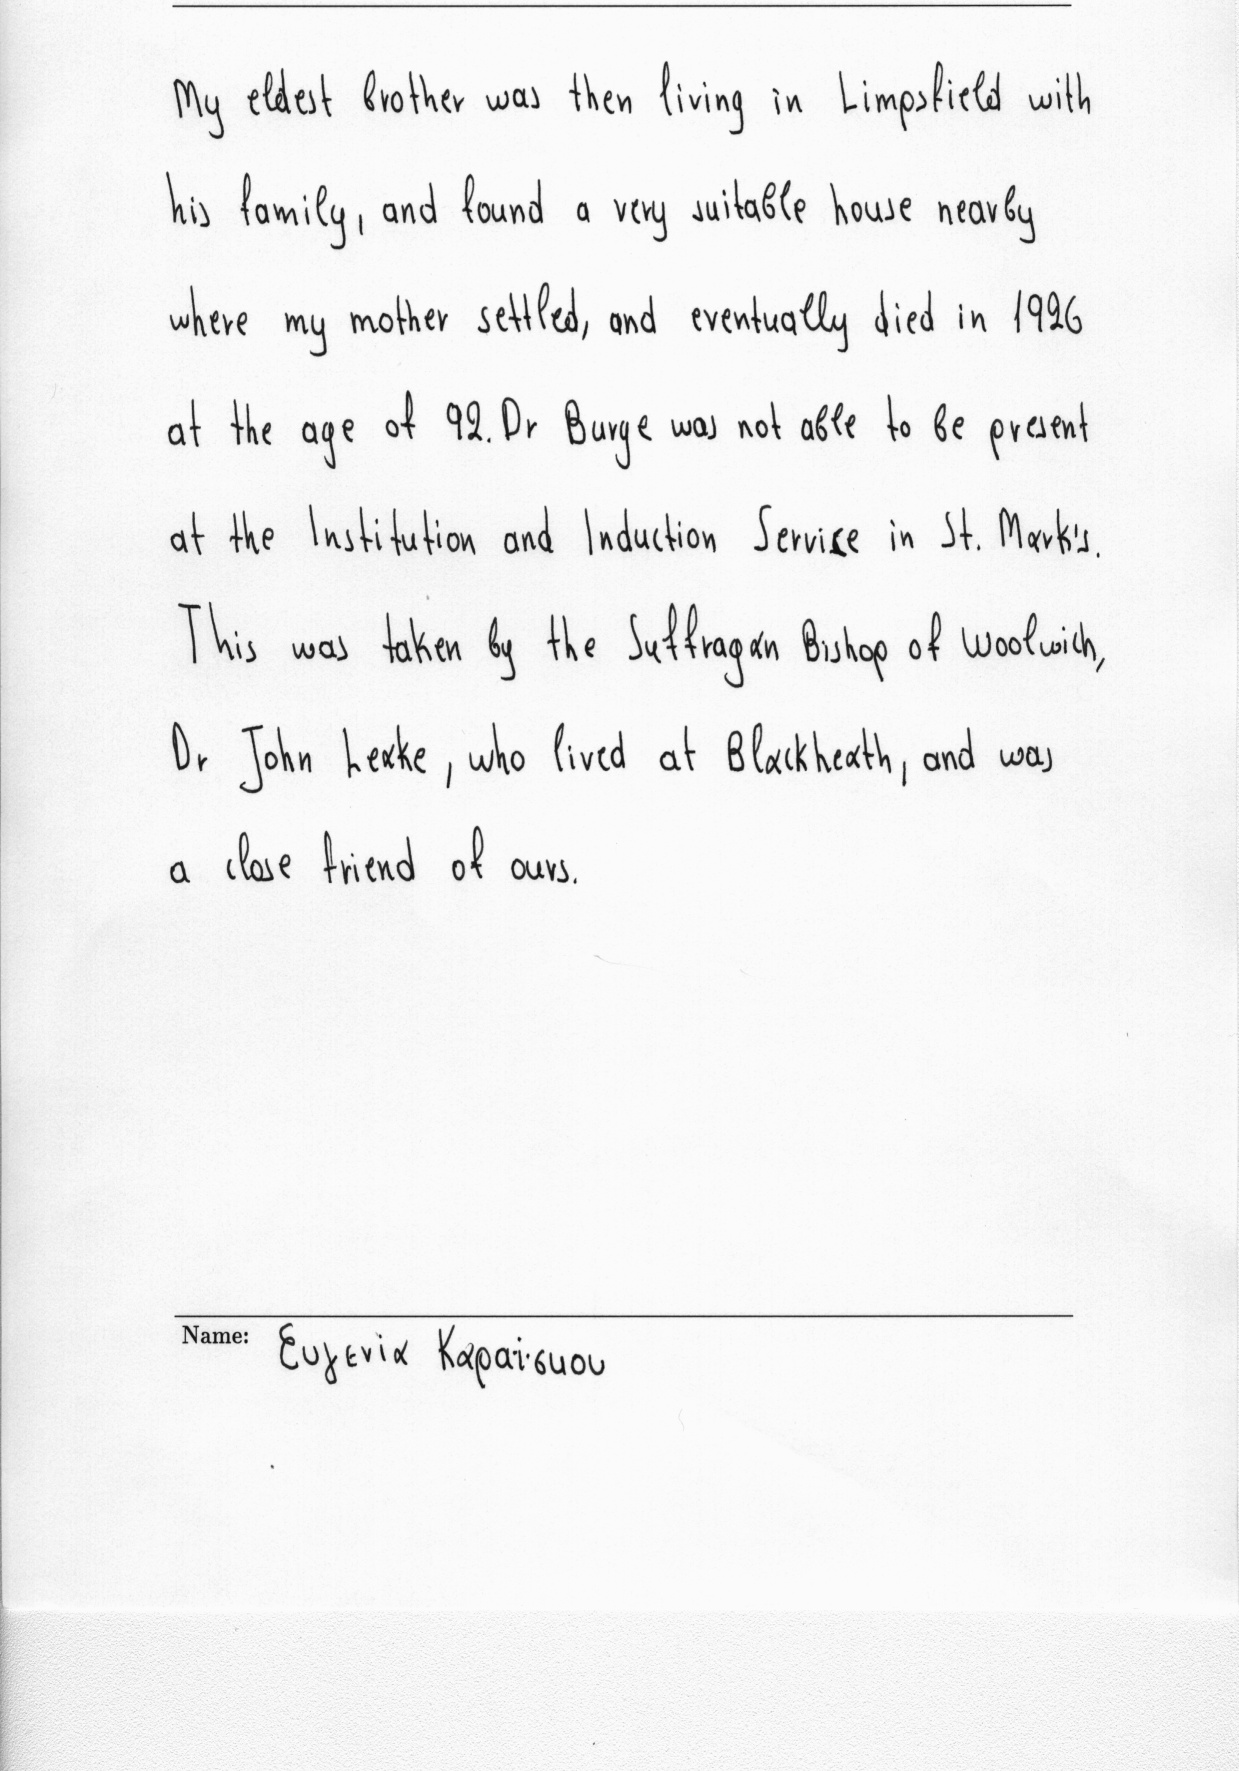 My eldest brother was then living in Limpsfield with
his family, and found a very suitable house nearby
where my mother settled, and eventually died in 1926
at the age of 92. Dr Burge was not able to be present
at the Institution and Induction Service in St. Mark's.
This was taken by the Suffragan Bishop of Woolwich,
Dr John Leake, who lived at Blackheath, and was
a close friend of ours.
Name: Ευγενία Καραΐσκου